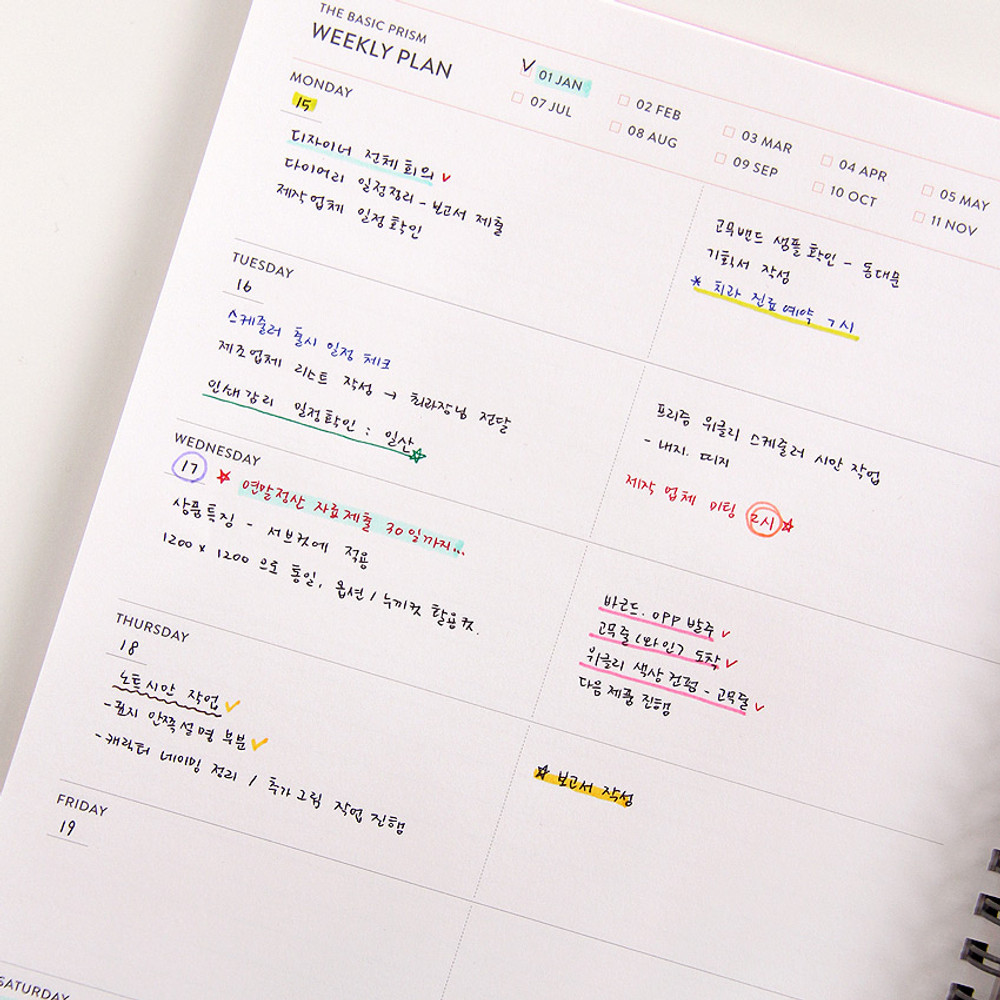 THE BASIC PRISM
WEEKLY PLAN
V 01 JAN
02 FEB
03 MAR
04 APR
05 MAY
07 JUL
08 AUG
09 SEP
10 OCT
11 NOV
MONDAY
15
디자이너 전체회의 ✓
다이어리 일정정리 - 보고서 제출
제작업체 일정확인
고무밴드 샘플 확인 - 동대문
기획서 작성
* 치과 진료예약 7시
TUESDAY
16
스케줄러 출시 일정 체크
제조업체 리스트 작성 → 최과장님 전달
인쇄감리 일정확인 : 일산☆
프리즘 위클리 스케줄러 시안 작업
- 내지. 띠지
제작 업체 미팅 2시☆
WEDNESDAY
17
★ 연말정산 자료제출 30일까지...
상품특징 - 서브컷에 적용
1200 x 1200 으로 통일, 옵션 / 누끼컷 활용컷.
바코드. OPP 발주 ✓
고무줄 (와인) 도착 ✓
위클리 색상 컨펌 - 고무줄 ✓
다음 제품 진행
THURSDAY
18
노트시안 작업 ✓
- 표지 안쪽 설명 부분 ✓
- 캐릭터 네이밍 정리 / 추가그림 작업 진행
☆ 보고서 작성
FRIDAY
19
SATURDAY